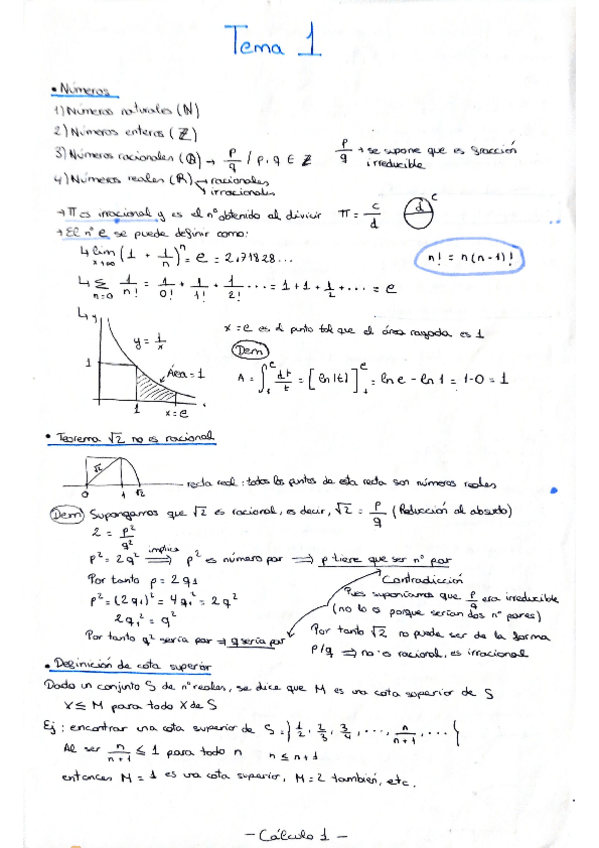 Tema 1
• Números
1) Números naturales (ℕ)
2) Números enteros (ℤ)
3) Números racionales (ℚ) → p/q / p, q ∈ ℤ   p/q → se supone que es fracción irreducible
4) Números reales (ℝ) → racionales
→ irracionales
→ π es irracional y es el nº obtenido al dividir π = c/d   d   c
→ El nº e se puede definir como:
↳ lim x→∞ (1 + 1/n)^n = e = 2,71828...   n! = n(n-1)!
↳ Σ n=0 1/n! = 1/0! + 1/1! + 1/2! ... = 1+1+1/2+... = e
↳ y   y = 1/x   Área = 1   1   1   x=e
x = e es el punto tal que el área rayada es 1
Dem
A = ∫₁^e dt/t = [ln|t|]₁^e = ln e - ln 1 = 1-0 = 1
• Teorema √2 no es racional
√2   0   1   √2   recta real: todos los puntos de esta recta son números reales
Dem Supongamos que √2 es racional, es decir, √2 = p/q (Reducción al absurdo)
2 = p²/q²
p² = 2q² implica ⟹ p² es número par ⟹ p tiene que ser nº par
Por tanto p = 2q₁
p² = (2q₁)² = 4q₁² = 2q²
2q₁² = q²
Por tanto q² sería par ⇒ q sería par
Contradicción
Pues suponíamos que p/q era irreducible
(no lo es porque serían dos nº pares)
Por tanto √2 no puede ser de la forma
p/q ⟹ no es racional, es irracional
• Definición de cota superior
Dado un conjunto S de nº reales, se dice que M es una cota superior de S
X ≤ M para todo X de S
Ej: encontrar una cota superior de S = }1/2, 2/3, 3/4, ..., n/n+1, ...{
Al ser n/n+1 ≤ 1 para todo n   n ≤ n+1
entonces M = 1 es una cota superior, M=2 también, etc.
- Cálculo 1 -